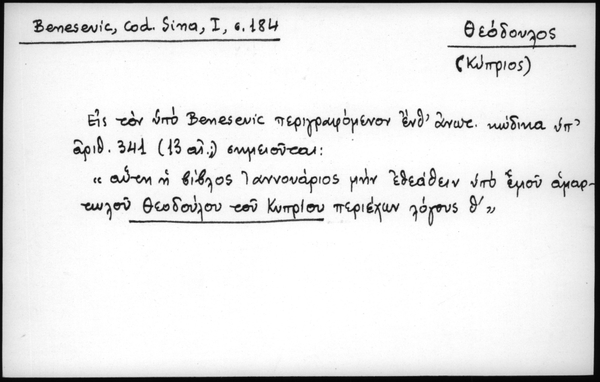 Benesevic, Cod. Sina, I, σ. 184
Θεόδουλος
(Κύπριος)
Εἰς τὸν ὑπὸ Benesevic περιγραφόμενον ἔνθ' ἄνωτ. κώδικα ὑπ'
ἀριθ. 341 (13 αἰ.) σημειοῦται:
« αὕτη ἡ βίβλος Ἰαννουάριος μὴν ἐθεάθειν ὑπὸ ἐμοῦ ἁμαρ-
τωλοῦ Θεοδούλου τοῦ Κυπρίου περιέχων λόγους θ' »